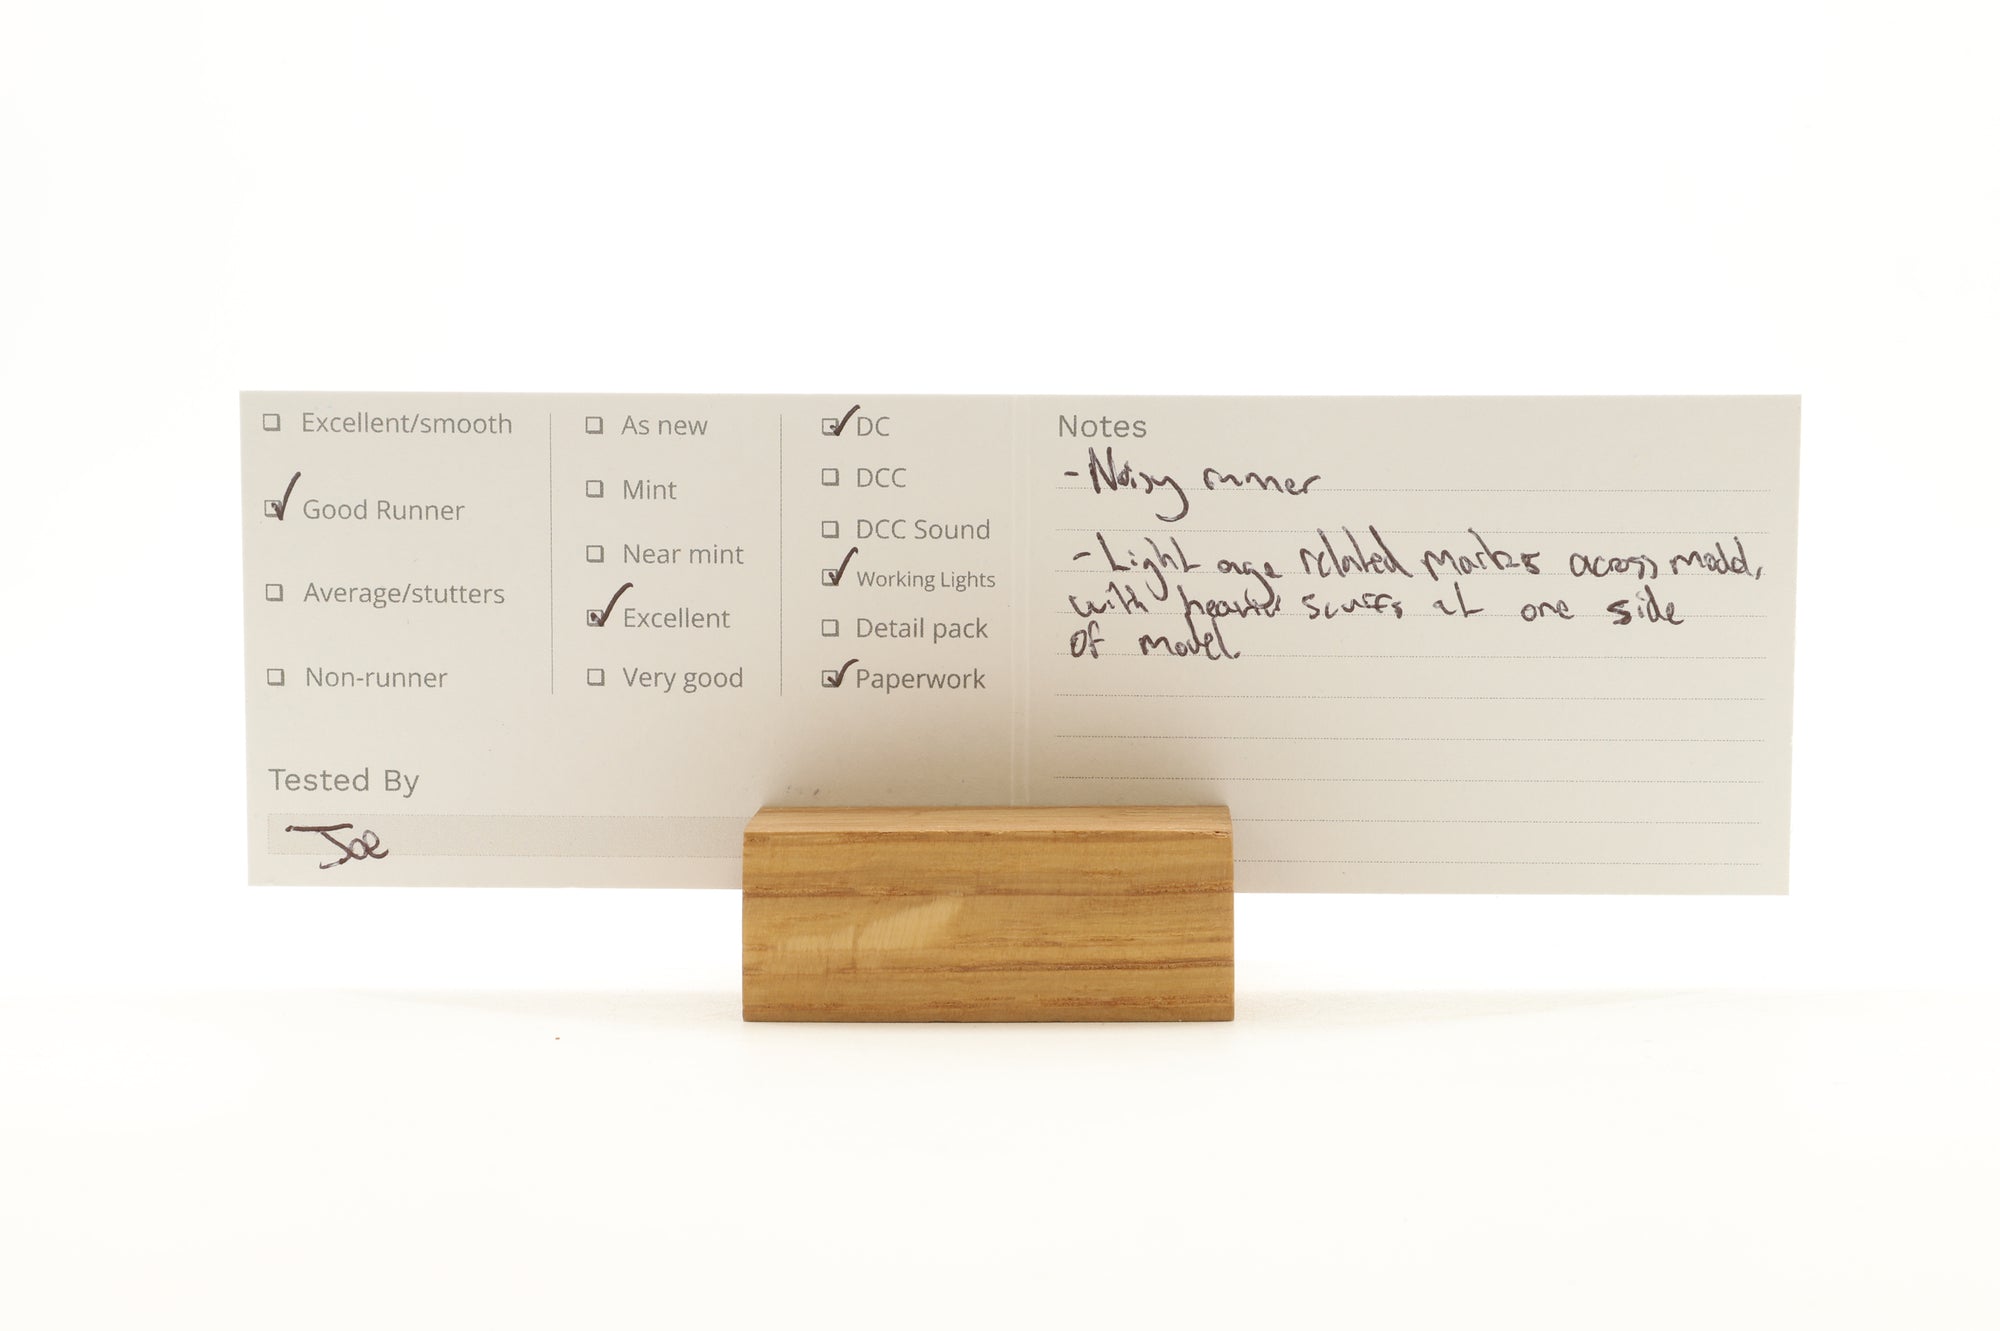 Excellent/smooth
Good Runner
Average/stutters
Non-runner
As new
Mint
Near mint
Excellent
Very good
DC
DCC
DCC Sound
Working Lights
Detail pack
Paperwork
Tested By
Joe
Notes
- Noisy runner
- Light age related marks across model,
with heavier scuffs at one side
of model.